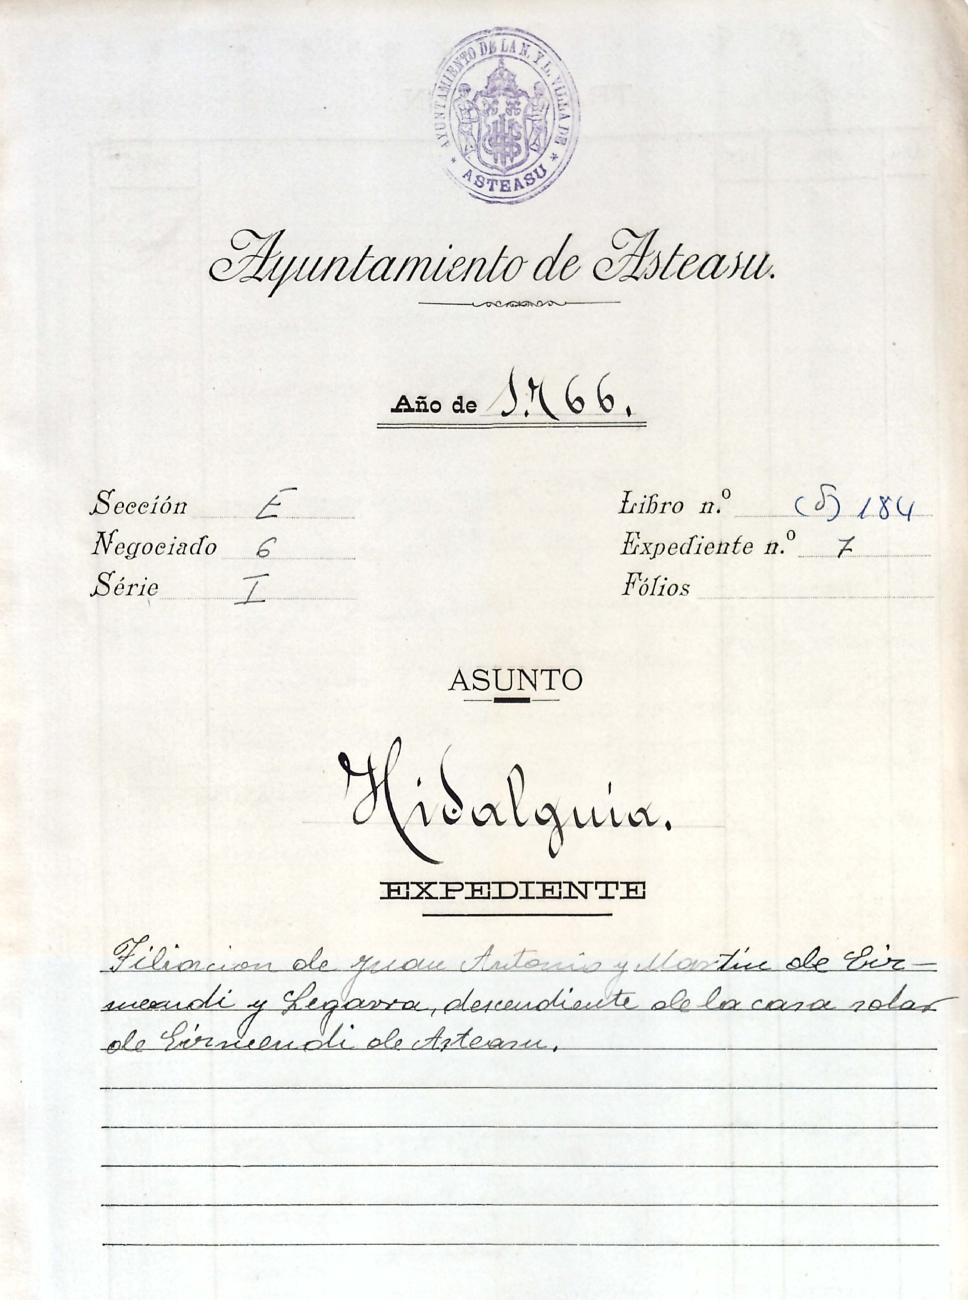 AYUNTAMIENTO DE LA N. Y L. VILLA DE
* ASTEASU *
Ayuntamiento de Asteasu.
Año de 1.766.
Sección E
Libro n.º (8) 184
Negociado 6
Expediente n.º 7
Série I
Fólios
ASUNTO
Hidalguia.
EXPEDIENTE
Filiacion de Juan Antonio y Martín de Eir-
mendi y Legarra, descendiente de la casa solar
de Eirmendi de Asteasu.